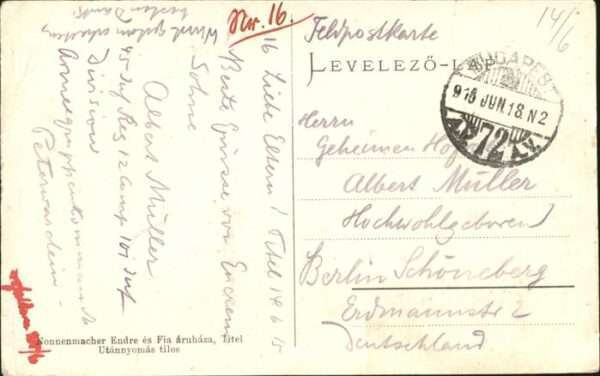 Nr. 16.
Feldpostkarte
14/6
LEVELEZŐ-LAP
BUDAPEST
915 JUN 18. N2
72
Herrn
Geheimen Hof
Albert Müller
Hochwohlgeboren
Berlin Schöneberg
Erdmannstr 2
Deutschland
16 Liebe Eltern! Titel 14 6 15
Beste Grüsse von Eurem
Sohne
Albert Müller
45 Inf Reg 12 Comp 101 Inf
Division
Peterwardein
besten Dank
Sonnenmacher Endre és Fia áruháza, Titel
Utánnyomás tilos